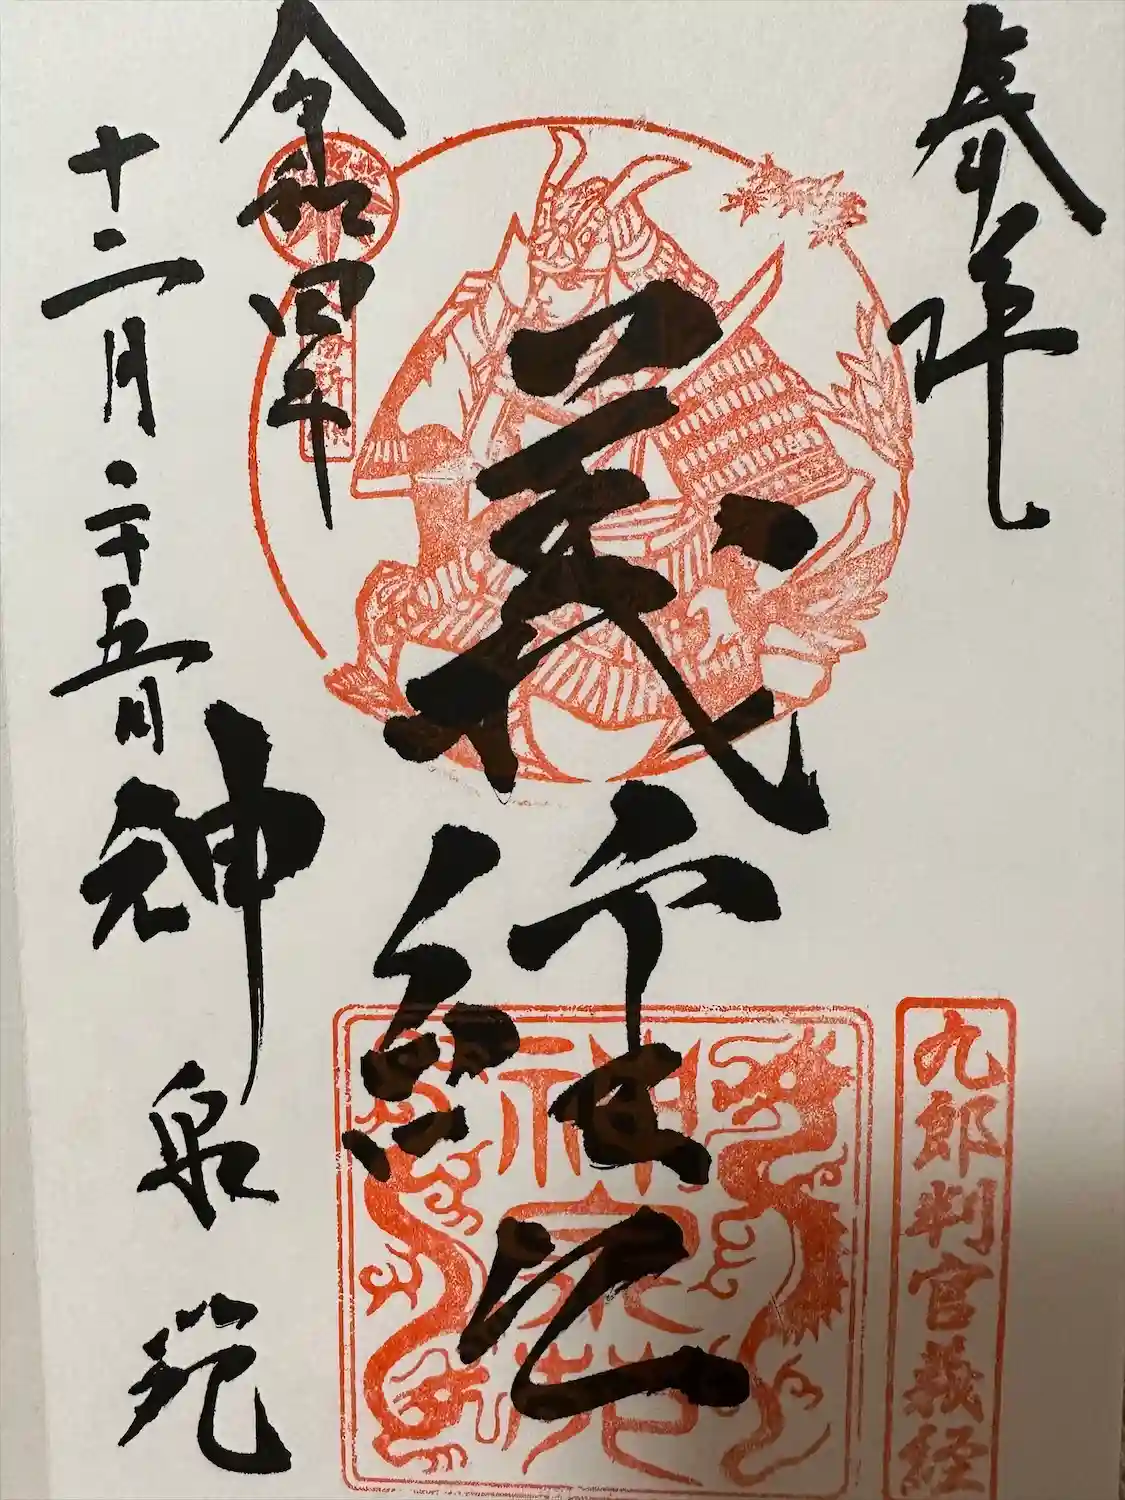 奉拝
九郎判官義経
義経公
神泉苑
令和四年
十二月二十五日
神泉苑